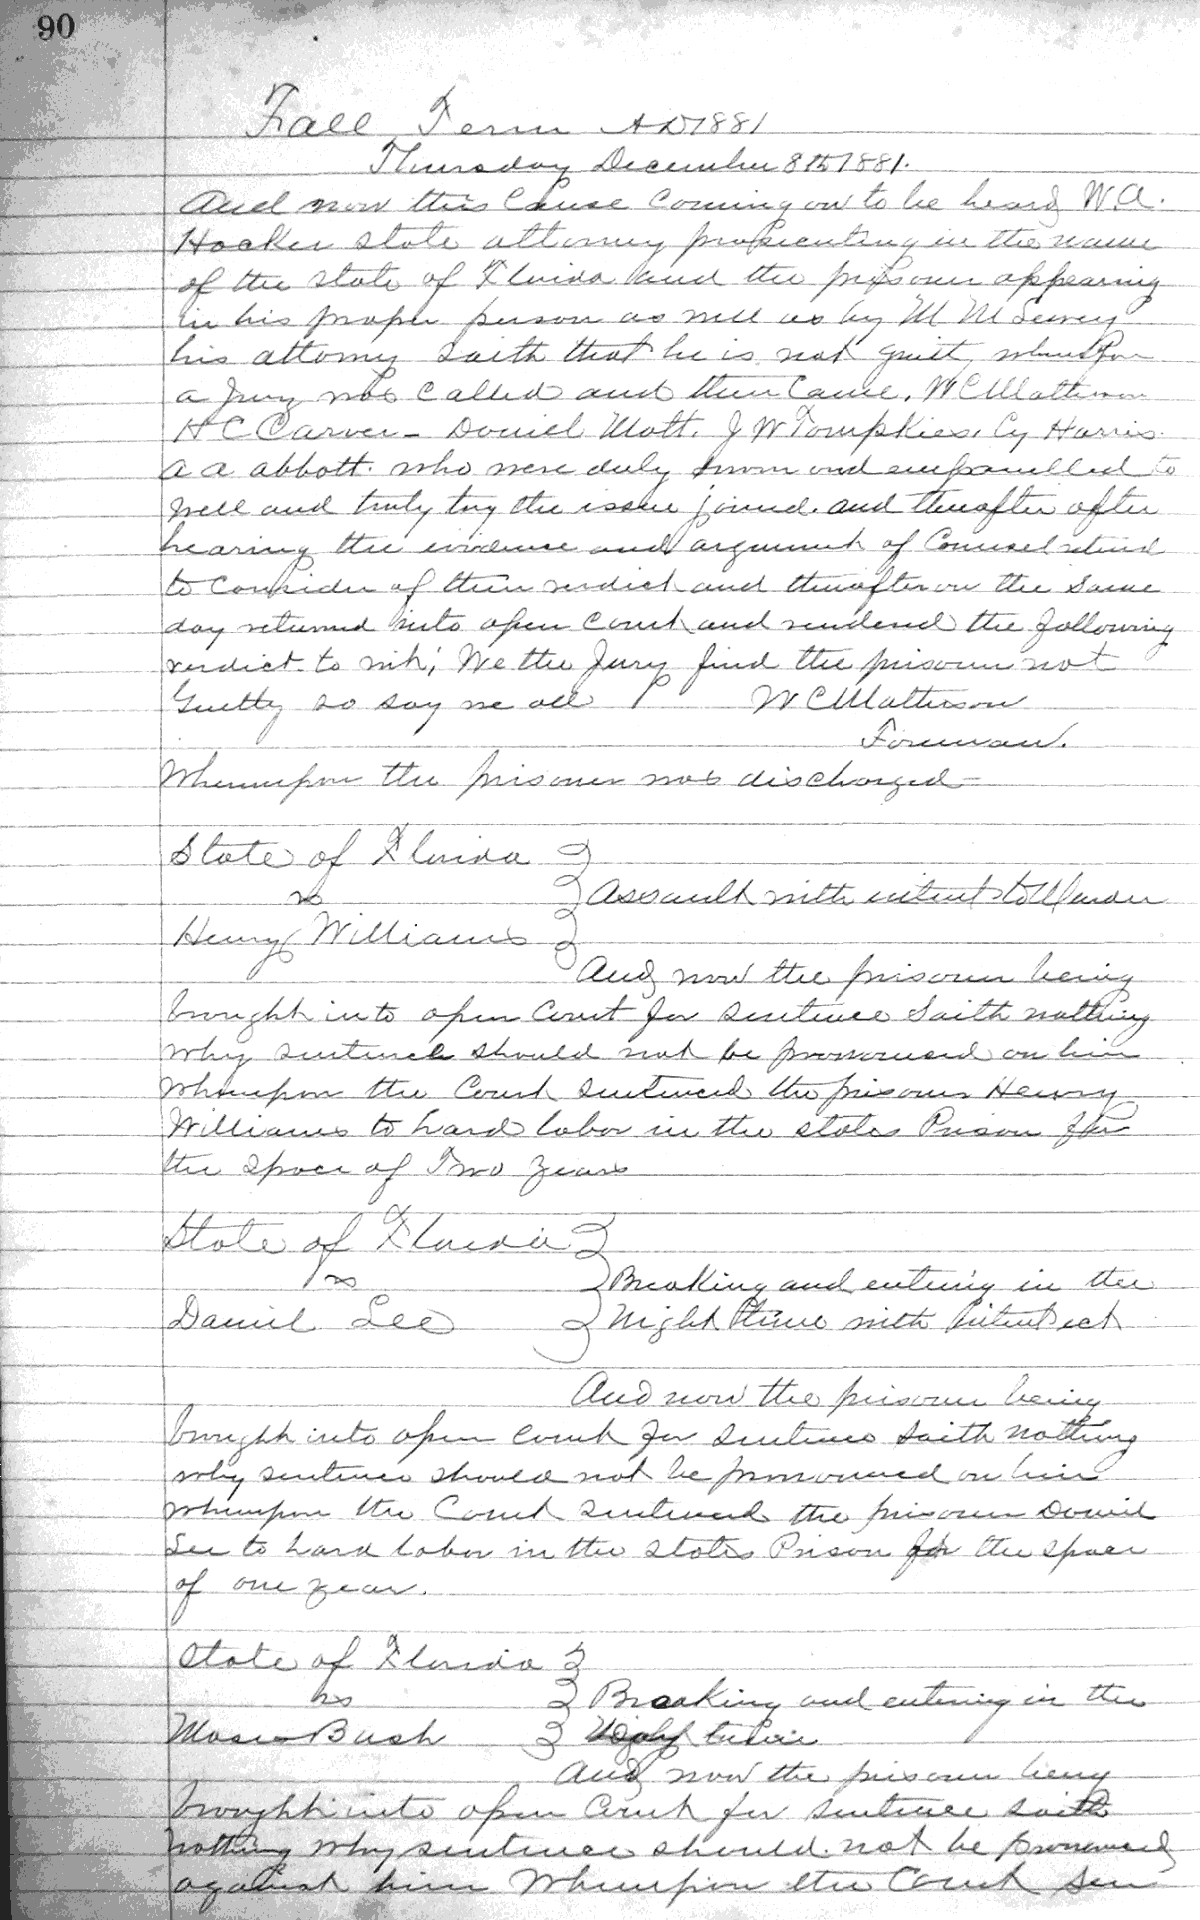 90
Fall Term AD 1881
Thursday December 8th 1881.
And now this Cause Coming on to be heard W.A.
Hocker state attorney prosecuting in the name
of the state of Florida and the prisoner appearing
in his proper person as well as by M M
his attorney saith that he is not guilt, whereupon
a Jury was Called and then Came. W C Matterson
H C Carver - Daniel Mott. J W Tompkies. Cy Harris.
A A Abbott. who were duly sworn and empanelled to
well and truly try the issue joined. and thereafter after
hearing the evidence and argument of Counsel retired
to Consider of their verdict and thereafter on the same
day returned into open Court and rendered the following
verdict to wit; We the Jury find the prisoner not
Guilty so say we all W C Matterson
Foreman.
Whereupon the prisoner was discharged -
State of Florida
vs Assault with intent to Murder
Henry Williams
And now the prisoner being
brought into open Court for sentence Saith nothing
why sentence should not be pronounced on him
whereupon the Court sentenced the prisoner Henry
Williams to hard labor in the states Prison for
the space of Two years
State of Florida
vs Breaking and entering in the
Daniel Lee Night time with intent ect
And now the prisoner being
brought into open court for sentence saith nothing
why sentence should not be pronounced on him
whereupon the Court sentenced the prisoner Daniel
Lee to hard labor in the states Prison for the space
of one year.
State of Florida
vs Breaking and entering in the
Moses Bush Night
And now the prisoner being
brought into open Court for sentence saith
nothing why sentence should not be pronounced
against him Whereupon the Court sen